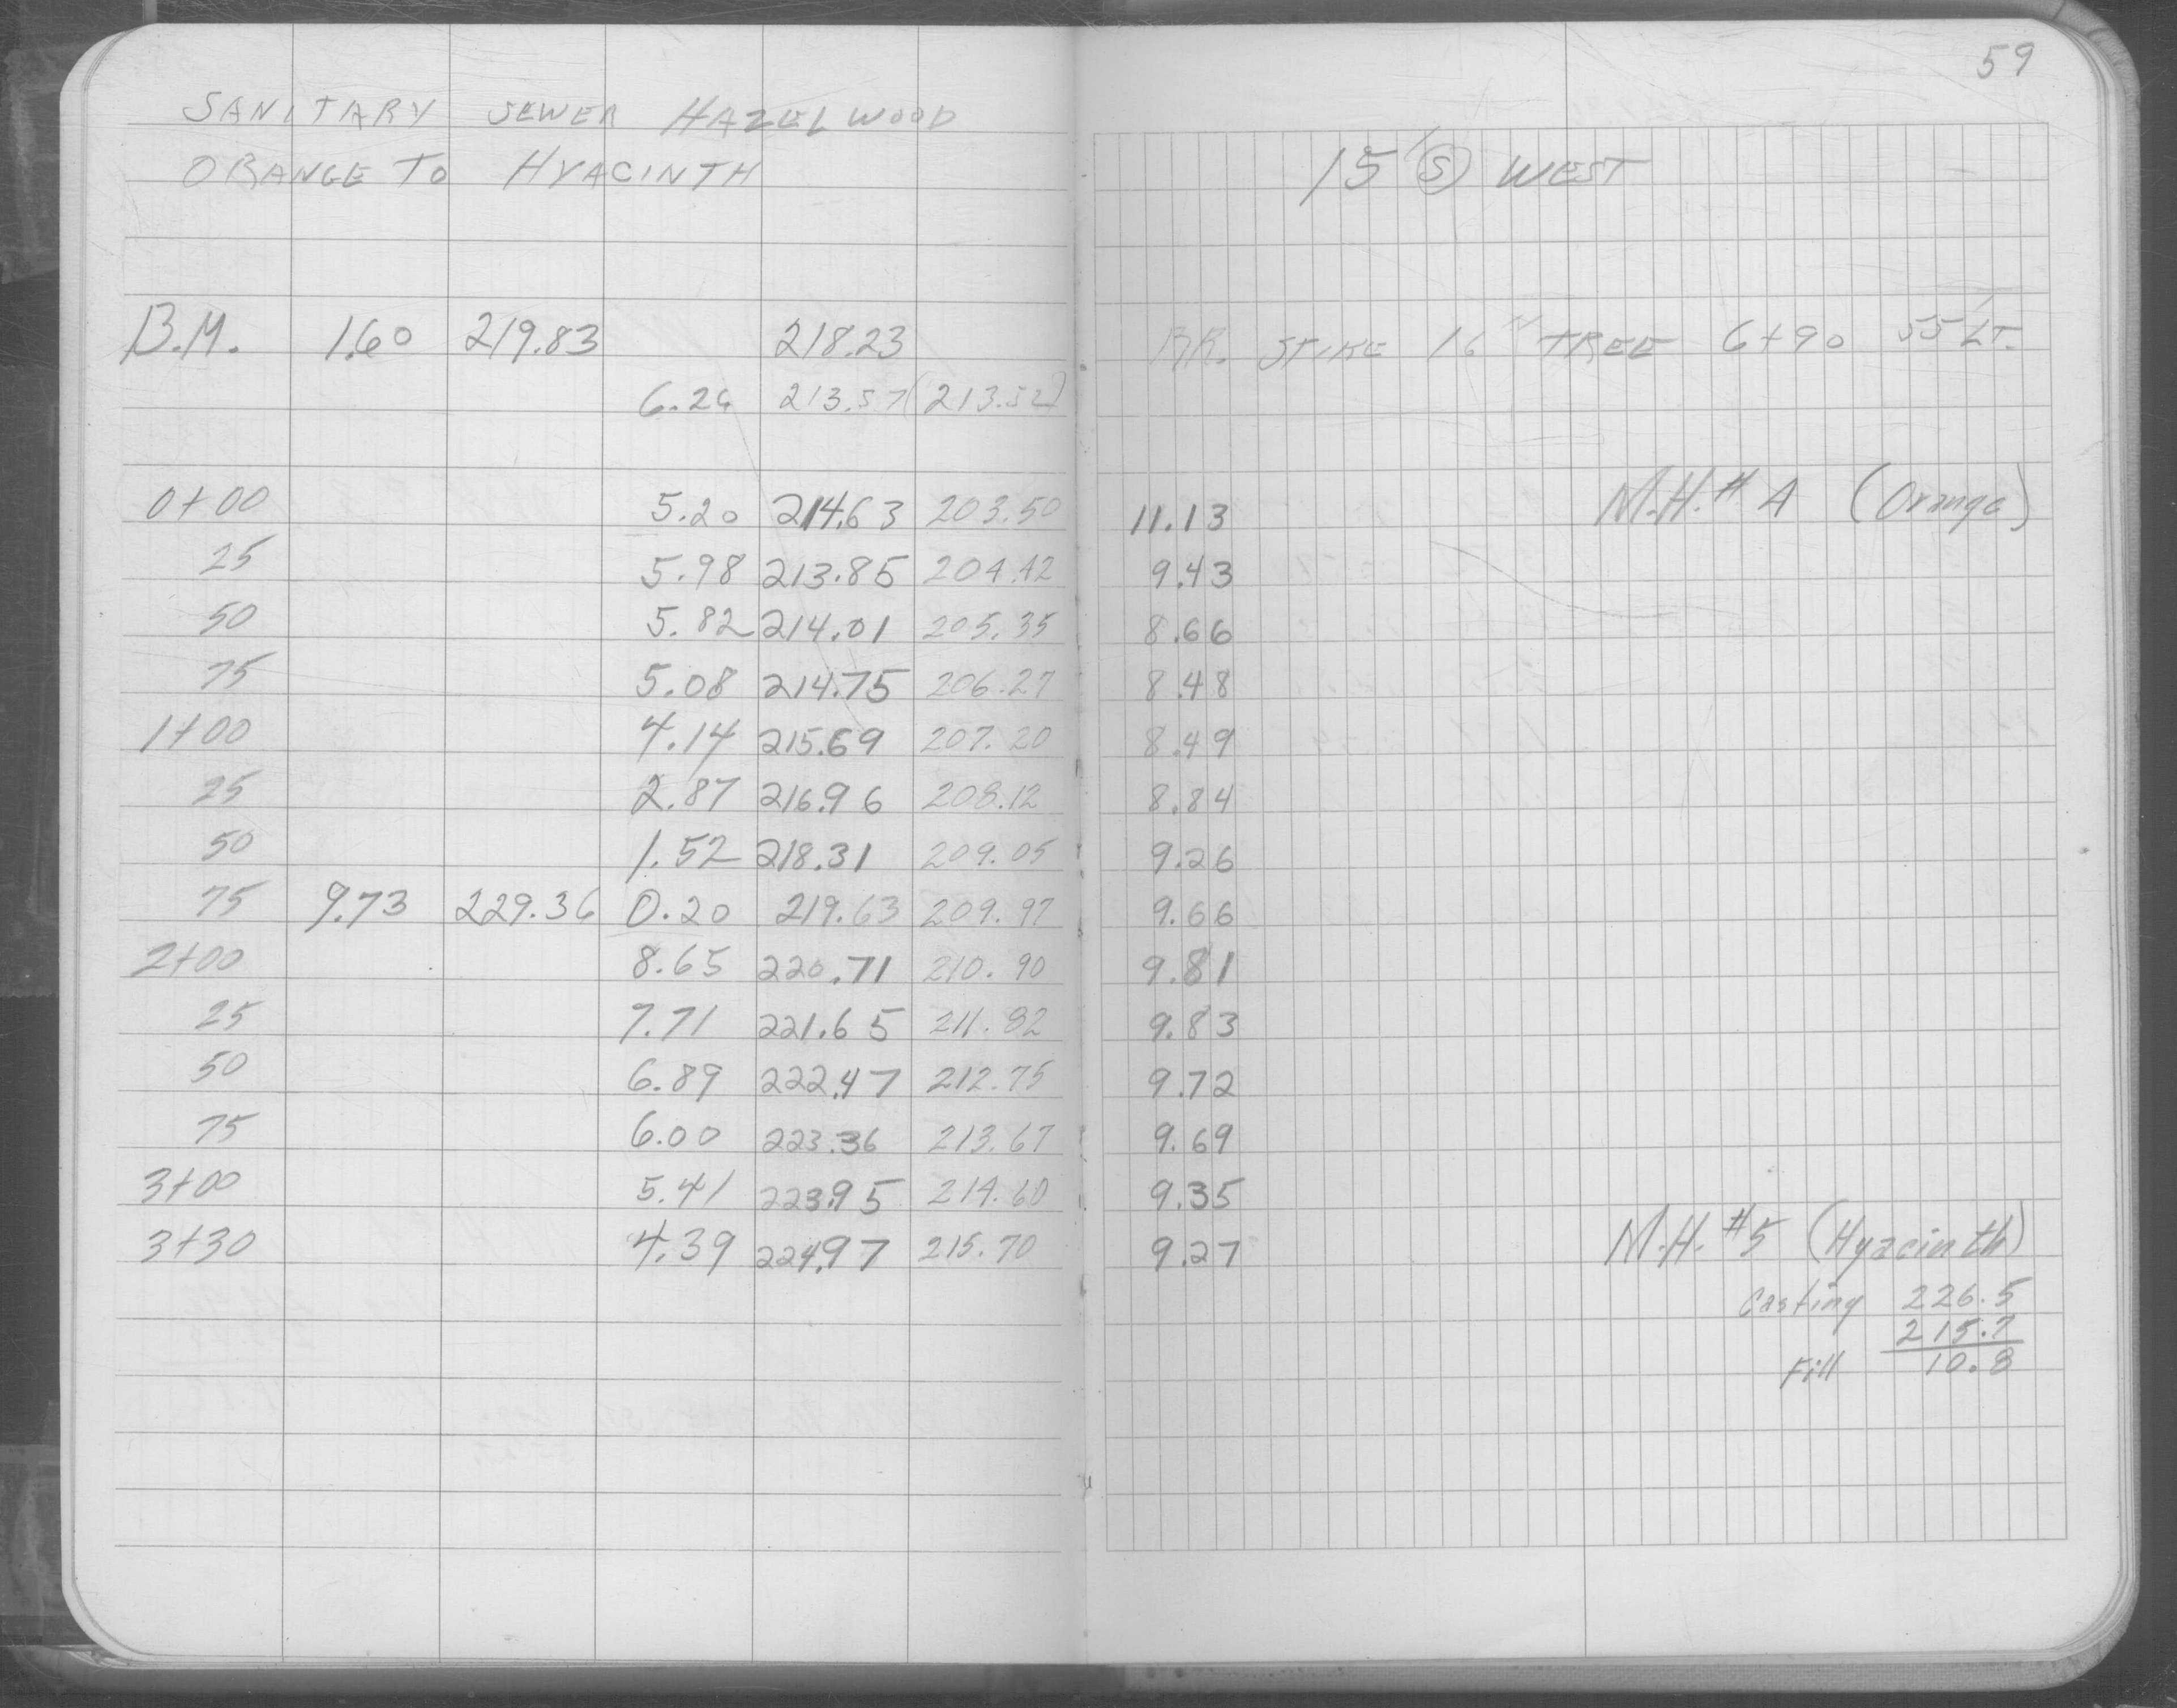 59
SANITARY SEWER HAZELWOOD
ORANGE TO HYACINTH
15' (S) WEST
B.M. 1.60 219.83 218.23 RR. SPIKE 16" TREE 6+90 55' LT.
6.26 213.57 (213.52)
0+00 5.20 214.63 203.50 11.13 M.H.# A (Orange)
25 5.98 213.85 204.42 9.43
50 5.82 214.01 205.35 8.66
75 5.08 214.75 206.27 8.48
1+00 4.14 215.69 207.20 8.49
25 2.87 216.96 208.12 8.84
50 1.52 218.31 209.05 9.26
75 9.73 229.36 0.20 219.63 209.97 9.66
2+00 8.65 220.71 210.90 9.81
25 7.71 221.65 211.82 9.83
50 6.89 222.47 212.75 9.72
75 6.00 223.36 213.67 9.69
3+00 5.41 223.95 214.60 9.35
3+30 4.39 224.97 215.70 9.27 M.H. #5 (Hyacinth)
Casting 226.5
215.7
Fill 10.8